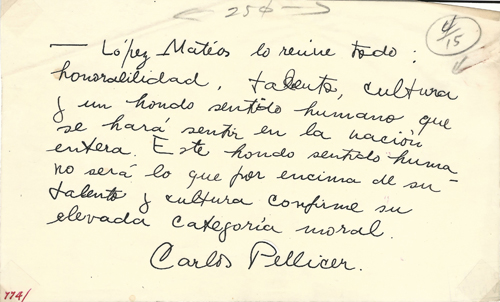 25¢
4/15
— López Mateos lo reúne todo:
honorabilidad, talento, cultura
y un hondo sentido humano que
se hará sentir en la nación
entera. Este hondo sentido huma
no será lo que por encima de su
talento y cultura confirme su
elevada categoría moral.
Carlos Pellicer.
774/